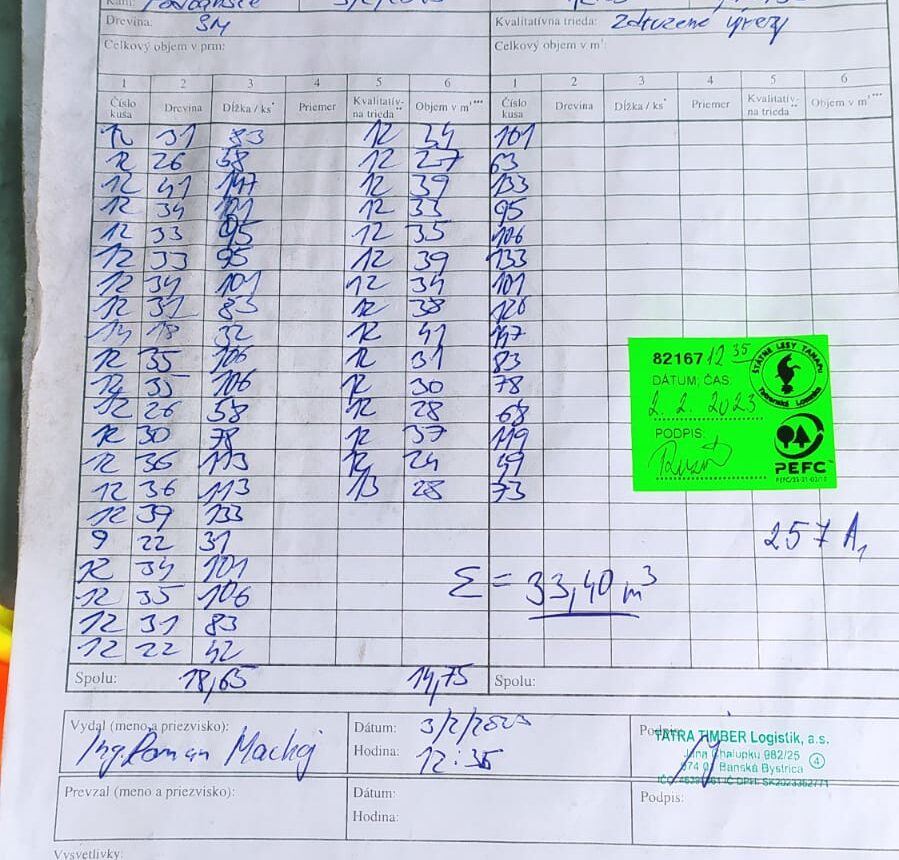 Drevina: SM Kvalitatívna trieda: Združené výrezy
Celkový objem v prm: Celkový objem v m³:
1 2 3 4 5 6 1 2 3 4 5 6
Číslo kusa Drevina Dĺžka / ks* Priemer Kvalitatív- na trieda** Objem v m³*** Číslo kusa Drevina Dĺžka / ks* Priemer Kvalitatív- na trieda** Objem v m³***
12 31 83 12 34 101
12 26 58 12 27 63
12 41 147 12 39 133
12 34 101 12 33 95
12 33 95 12 35 106
12 33 95 12 39 133
12 34 101 12 34 101
12 31 83 12 38 126
14 18 32 12 41 147
12 35 106 12 31 83
12 35 106 12 30 78
12 26 58 12 28 68
12 30 78 12 37 119
12 36 113 12 24 49
12 36 113 13 28 73
12 39 133
9 22 31
12 34 101
12 35 106
12 31 83
12 22 42
82167 12 35
DÁTUM, ČAS:
2. 2. 2023
PODPIS:
ŠTÁTNE LESY TANAPU
Tatranská Lomnica
PEFC
257 A1
Σ = 33,40 m³
Spolu: 18,65 14,75 Spolu:
Vydal (meno a priezvisko): Ing. Roman Machaj
Dátum: 3/2/2023
Hodina: 12:35
Podpis:
TATRA TIMBER Logistik, a.s.
Jána Chalupku 982/25
974 01 Banská Bystrica
4
Prevzal (meno a priezvisko):
Dátum:
Hodina:
Podpis:
Vysvetlivky: